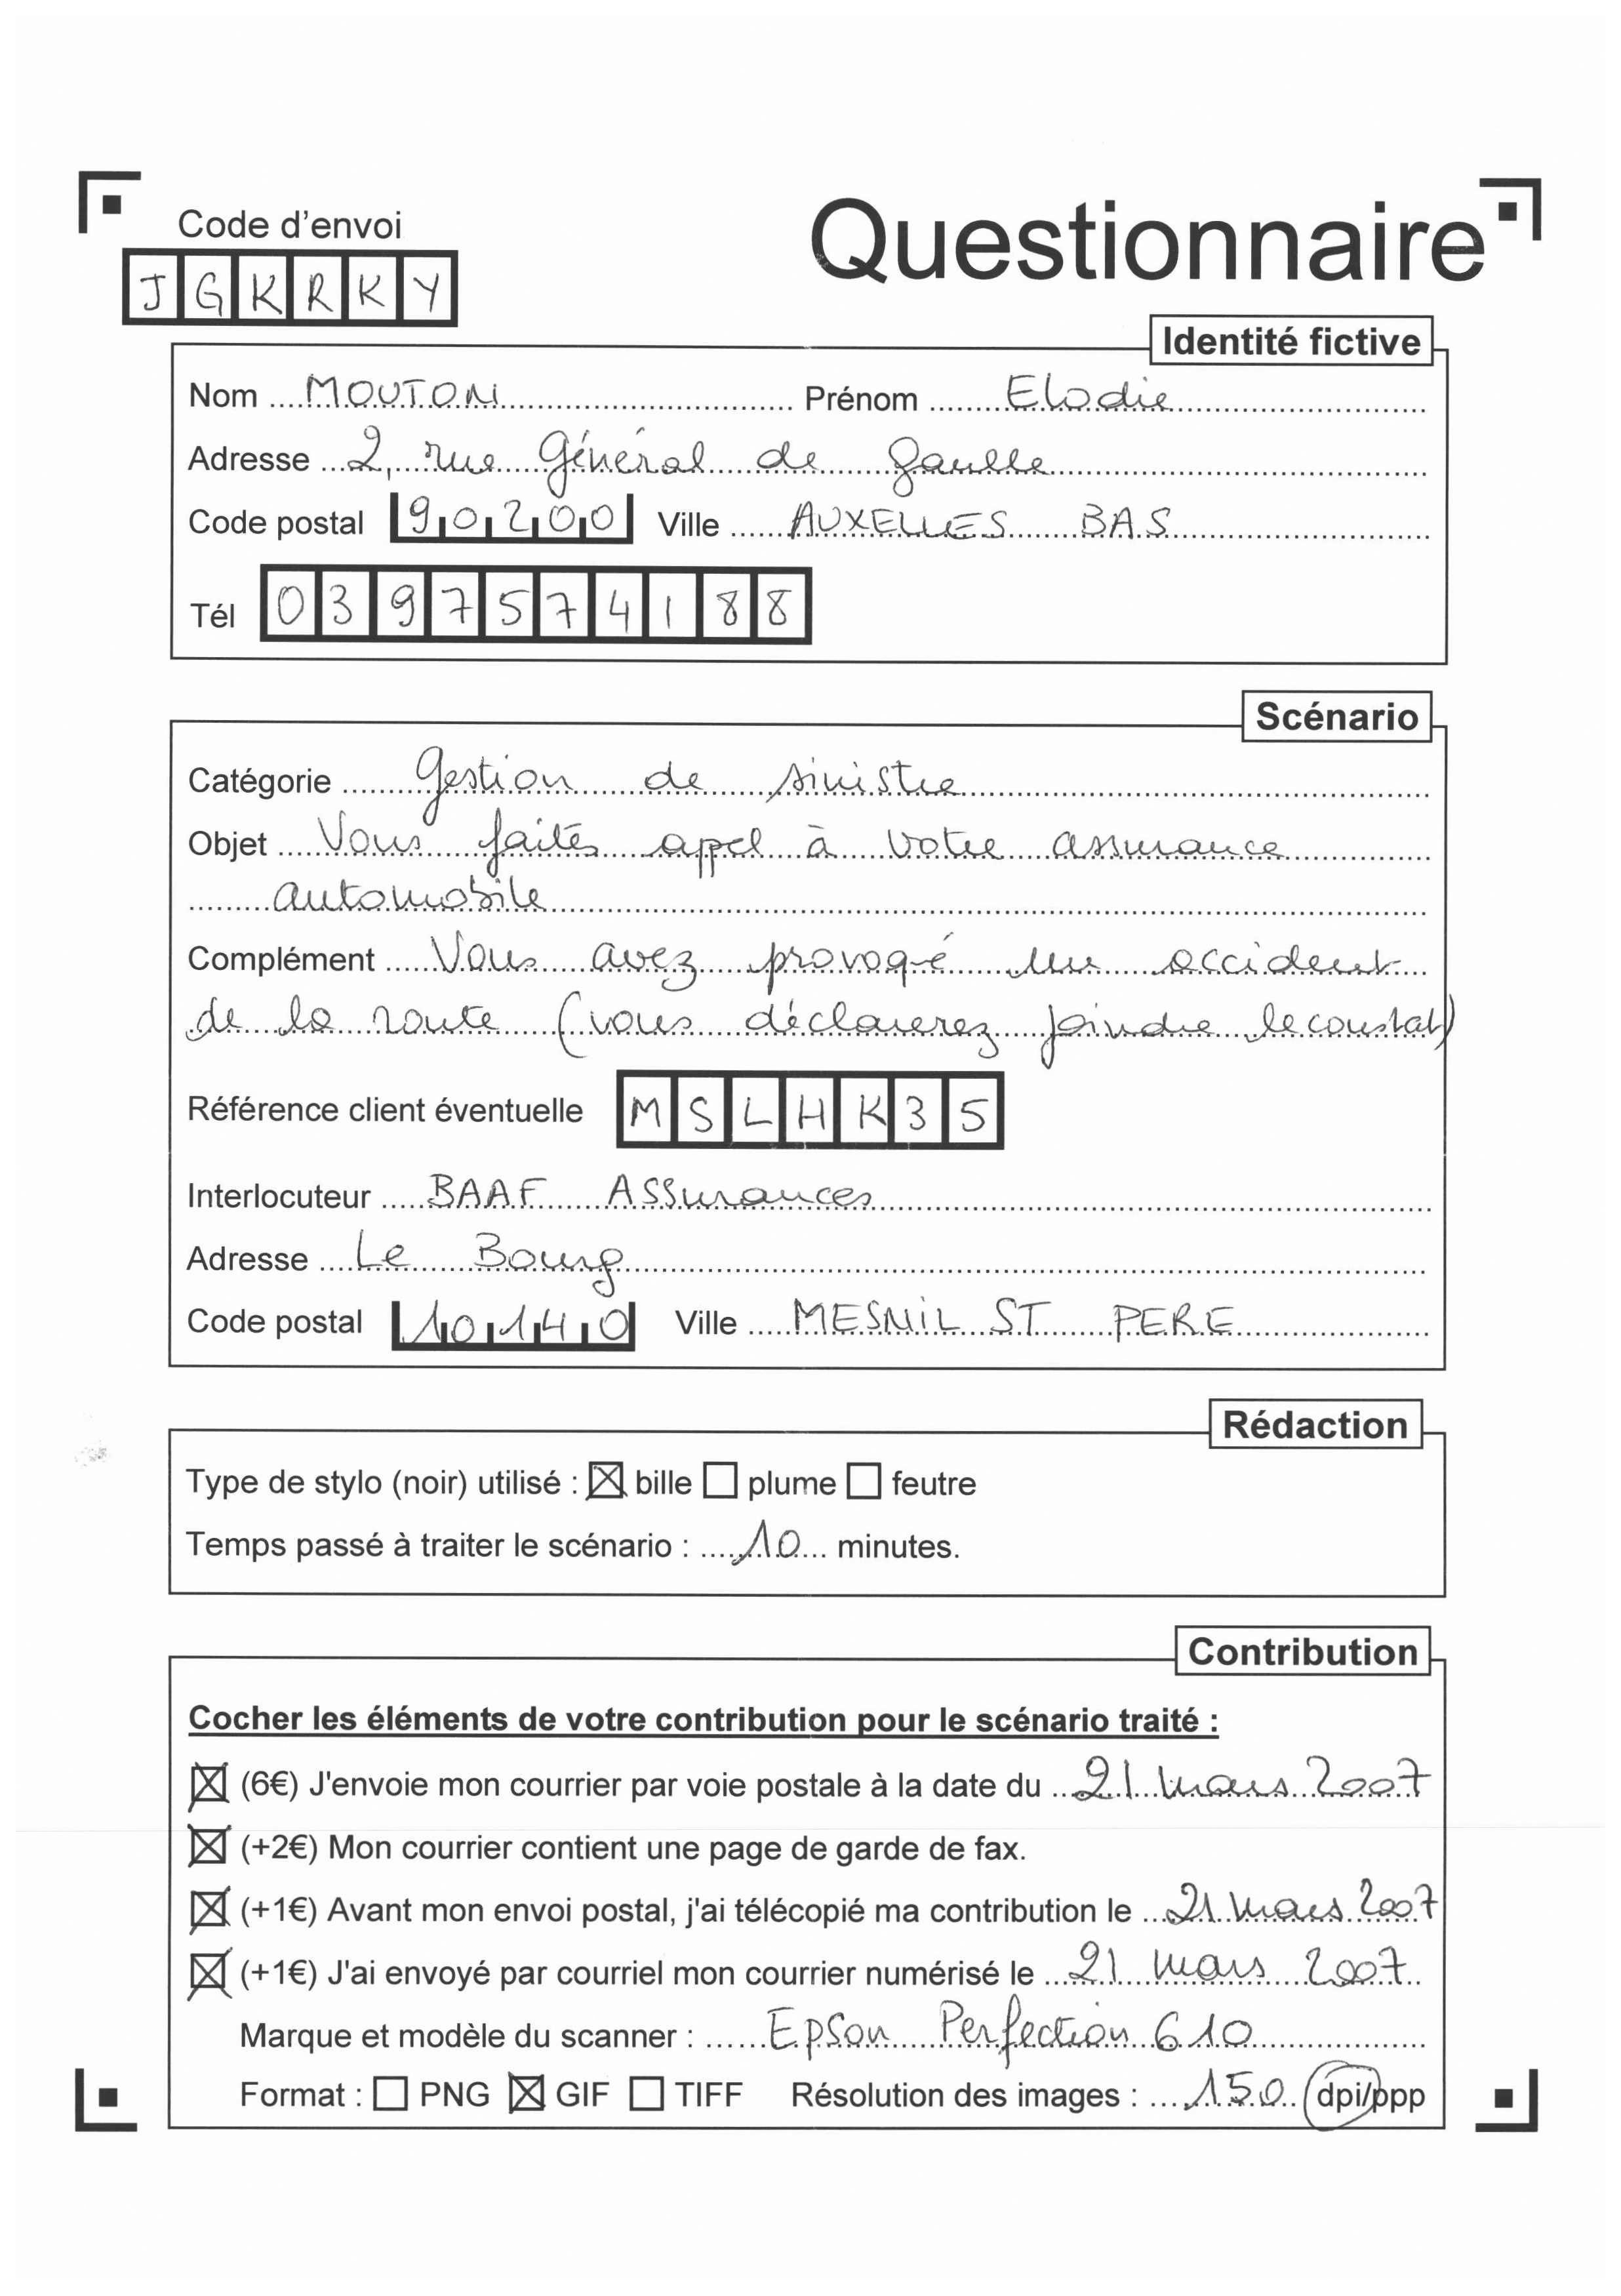 Code d'envoi
Questionnaire
JGKRKY
Identité fictive
Nom MOUTON Prénom Elodie
Adresse 2, rue Général de Gaulle
Code postal 90200 Ville AUXELLES BAS
Tél 0397574188
Scénario
Catégorie Gestion de sinistre
Objet Vous faites appel à votre assurance
automobile
Complément Vous avez provoqué un accident
de la route (vous déclarerez joindre le constat)
Référence client éventuelle MSLHK35
Interlocuteur BAAF ASSurances
Adresse Le Bourg
Code postal 10140 Ville MESNIL ST PERE
Rédaction
Type de stylo (noir) utilisé : ☒ bille ☐ plume ☐ feutre
Temps passé à traiter le scénario : 10 minutes.
Contribution
Cocher les éléments de votre contribution pour le scénario traité :
☒ (6€) J'envoie mon courrier par voie postale à la date du 21 mars 2007
☒ (+2€) Mon courrier contient une page de garde de fax.
☒ (+1€) Avant mon envoi postal, j'ai télécopié ma contribution le 21 mars 2007
☒ (+1€) J'ai envoyé par courriel mon courrier numérisé le 21 mars 2007
Marque et modèle du scanner : Epson Perfection 610
Format : ☐ PNG ☒ GIF ☐ TIFF Résolution des images : 150 dpi/ppp